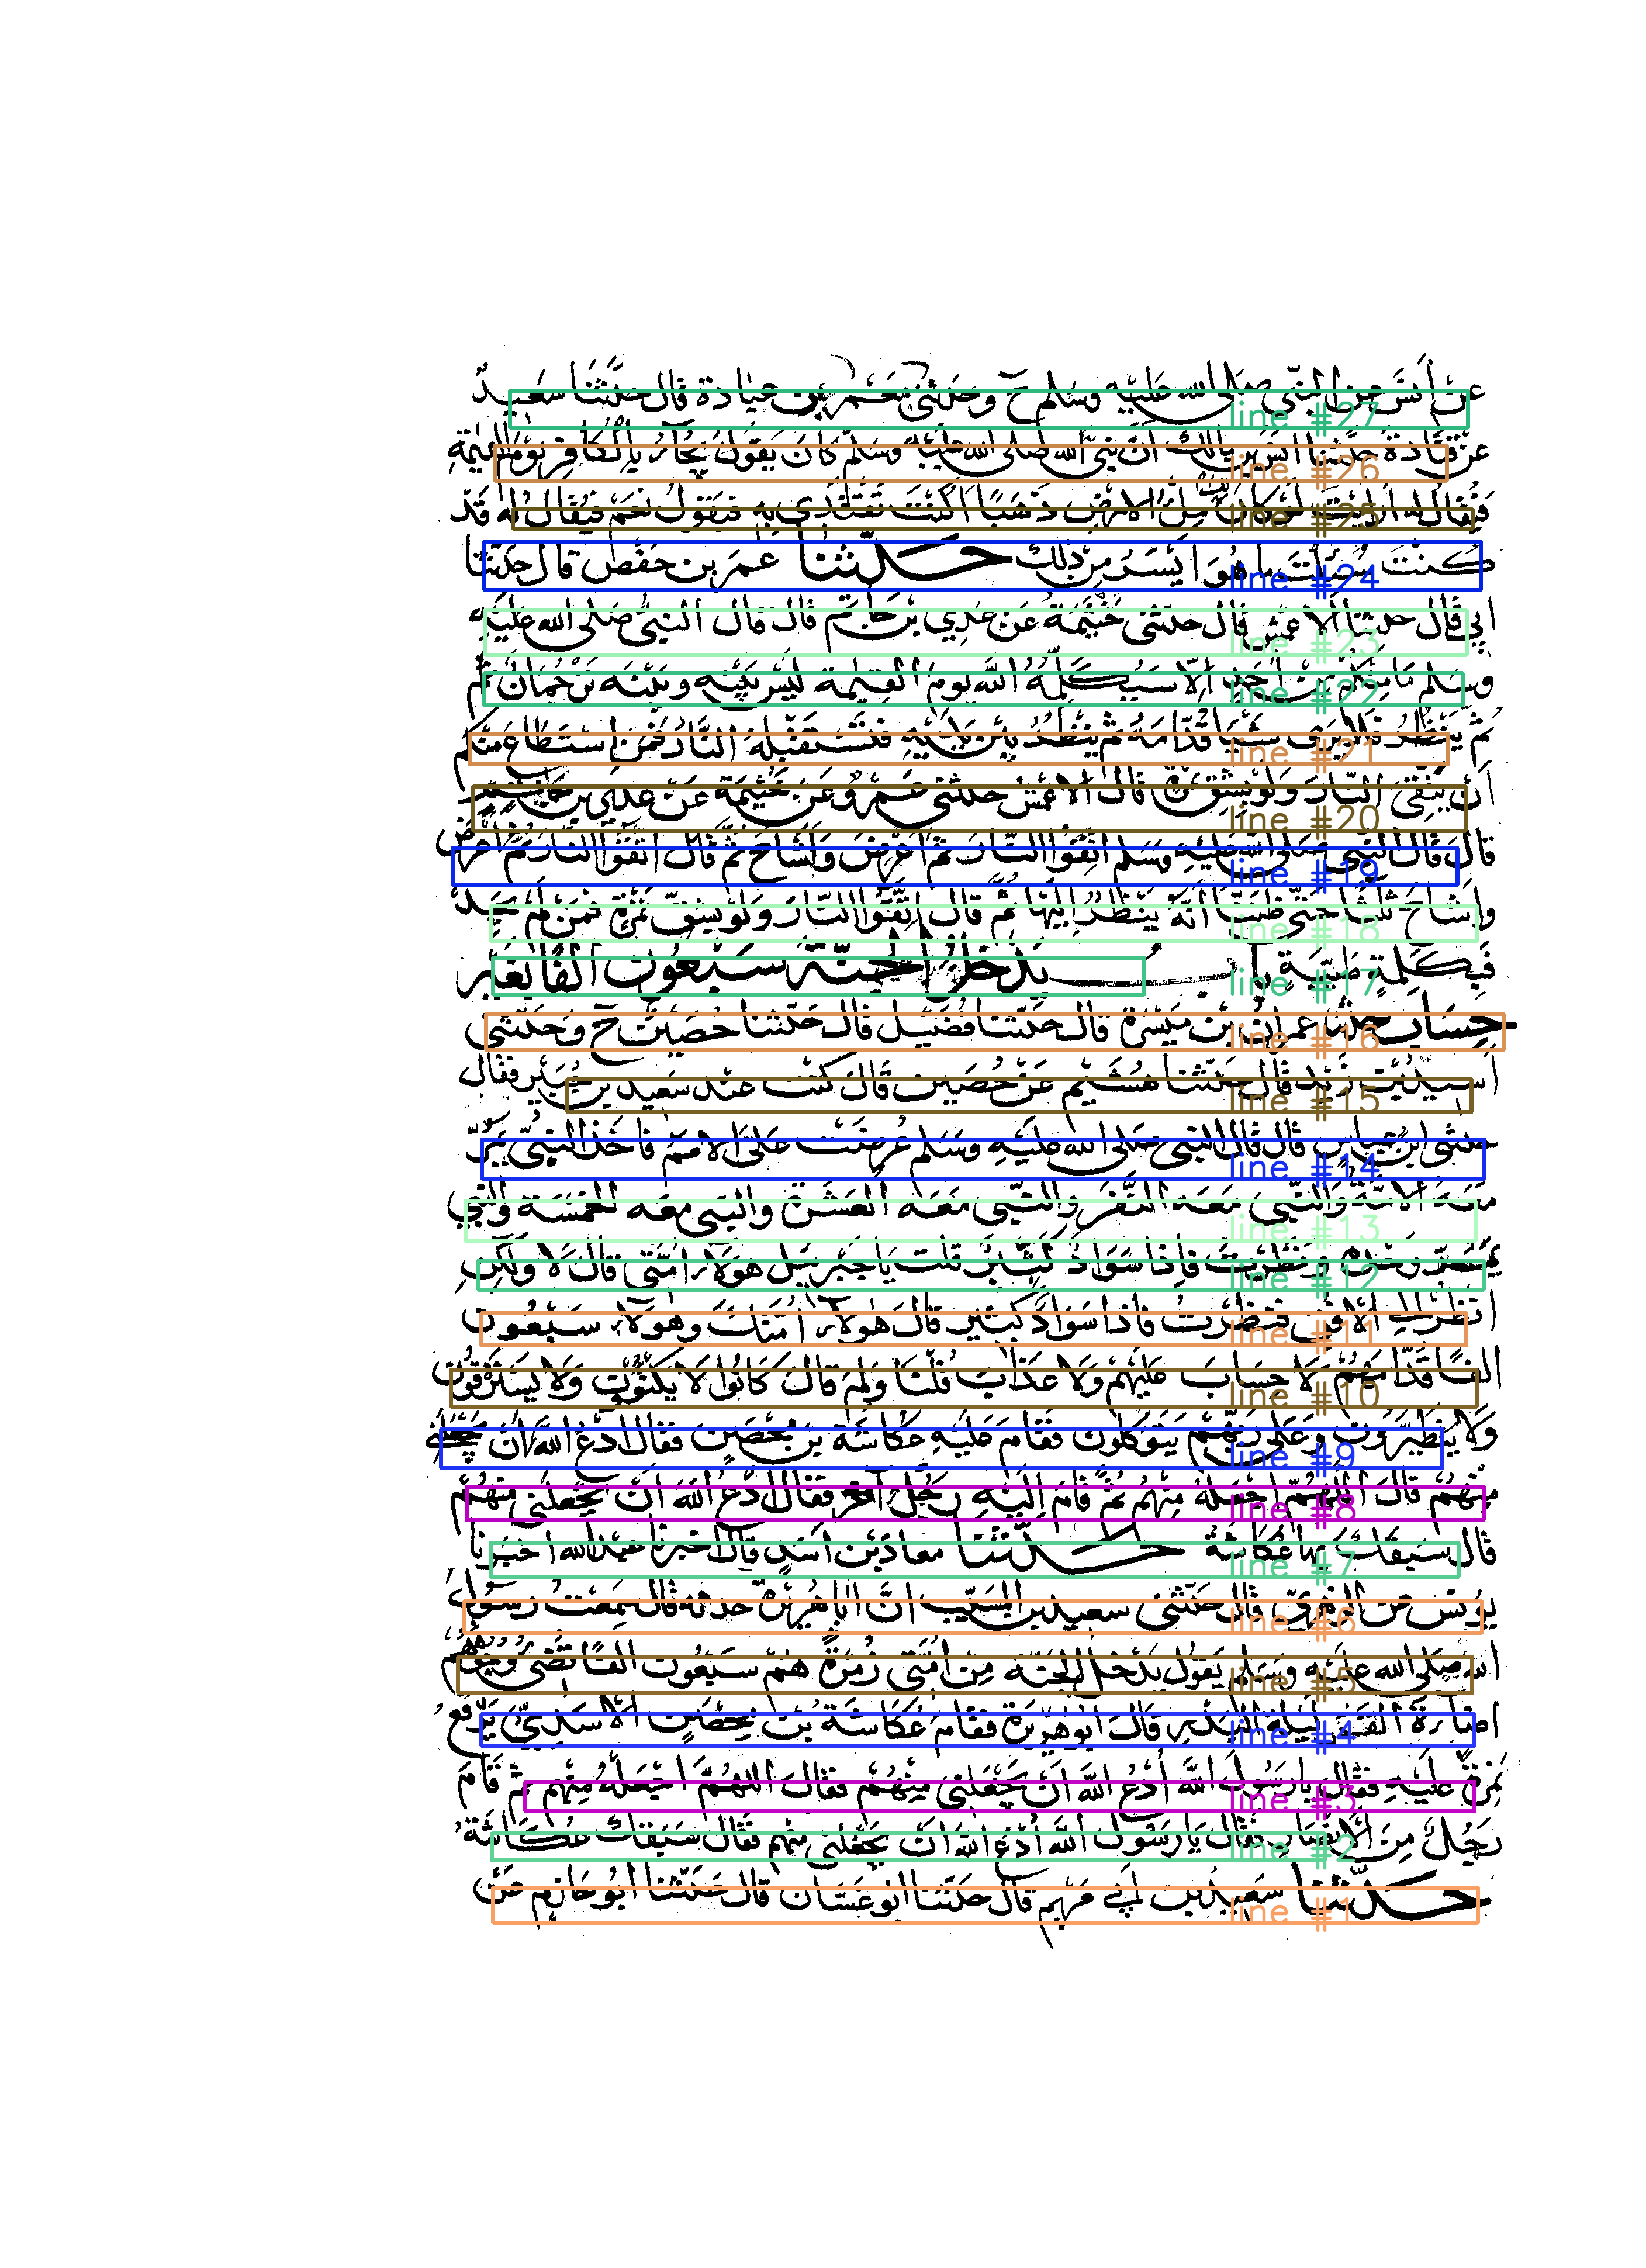 عن أنس عن النبي صلى الله عليه وسلم ح وحدثني معمر بن عبادة قال حدثنا سعيد
عن قتادة حدثنا انس بن مالك أن نبي الله صلى الله عليه وسلم كان يقول يجاء بالكافر يوم القيمة
فيقال له ارايت لو كان لك مل الارض ذهبا اكنت تفتدي به فيقول نعم فيقال له قد
كنت سئلت ما هو ايسر من ذلك حدثنا عمر بن حفص قال حدثنا
ابي قال حدثنا الاعمش قال حدثني خيثمة عن عدي بن حاتم قال قال النبي صلى الله عليه
وسلم ما منكم من أحد الا سيكلمه الله يوم القيمة ليس بينه وبينه ترجمان ثم
ثم ينظر فلا يرى شيئا قدامه ثم ينظر بين يديه فتستقبله النار فمن استطاع منكم
أن يتقى النار ولو بشق تمرة قال الاعمش حدثني عمرو عن خيثمة عن عدي بن حاتم
قال قال النبي صلى الله عليه وسلم اتقوا النار ثم اعرض وأشاح ثم قال اتقوا النار ثم اعرض
واشاح ثلثا حتى ظننا أنه ينظر اليها ثم قال اتقوا النار ولو بشق تمرة فمن لم يجد
فبكلمة طيبة باب يدخل الجنة سبعون الفا بغير
حساب حدثنا عمران بن ميسرة قال حدثنا فضيل قال حدثنا حصين ح وحدثني
اسيد بن زيد قال حدثنا هشيم عن حصين قال كنت عند سعيد بن جبير فقال
حدثني ابن عباس قال قال النبي صلى الله عليه وسلم عرضت على الامم فاخذ النبي يمر
معه الامة والنبي معه النفر والنبي معه العشرة والنبي معه الخمسة والنبي
يمر وحده فنظرت فاذا سواد كثير قلت يا جبريل هولاء امتي قال لا ولكن
انظر الى الافق فنظرت فاذا سواد كثير قال هولاء امتك وهولاء سبعون
الفا قدامهم لا حساب عليهم ولا عذاب قلت ولم قال كانوا لا يكتوون ولا يسترقون
ولا يتطيرون وعلى ربهم يتوكلون فقام عليه عكاشة بن محصن فقال ادع الله ان يجعلني
منهم قال اللهم اجعله منهم ثم قام اليه رجل آخر فقال ادع الله ان يجعلني منهم
قال سبقك بها عكاشة حدثنا معاذ بن اسد قال اخبرنا عبد الله اخبرنا
يونس عن الزهري قال حدثني سعيد بن المسيب ان ابا هريرة حدثه قال سمعت رسول
الله صلى الله عليه وسلم يقول يدخل الجنة من امتي زمرة هم سبعون الفا تضي وجوههم
اضاءة القمر ليلة البدر قال ابو هريرة فقام عكاشة بن محصن الاسدي يرفع
نمرة عليه فقال يا رسول الله أدع الله ان يجعلني منهم فقال اللهم اجعله منهم ثم قام
رجل من الانصار فقال يا رسول الله أدع الله ان يجعلني منهم فقال سبقك عكاشة
حدثنا سعيد بن ابي مريم قال حدثنا ابو غسان قال حدثنا ابو حازم عن
line #27
line #26
line #25
line #24
line #23
line #22
line #21
line #20
line #19
line #18
line #17
line #16
line #15
line #14
line #13
line #12
line #11
line #10
line #9
line #8
line #7
line #6
line #5
line #4
line #3
line #2
line #1